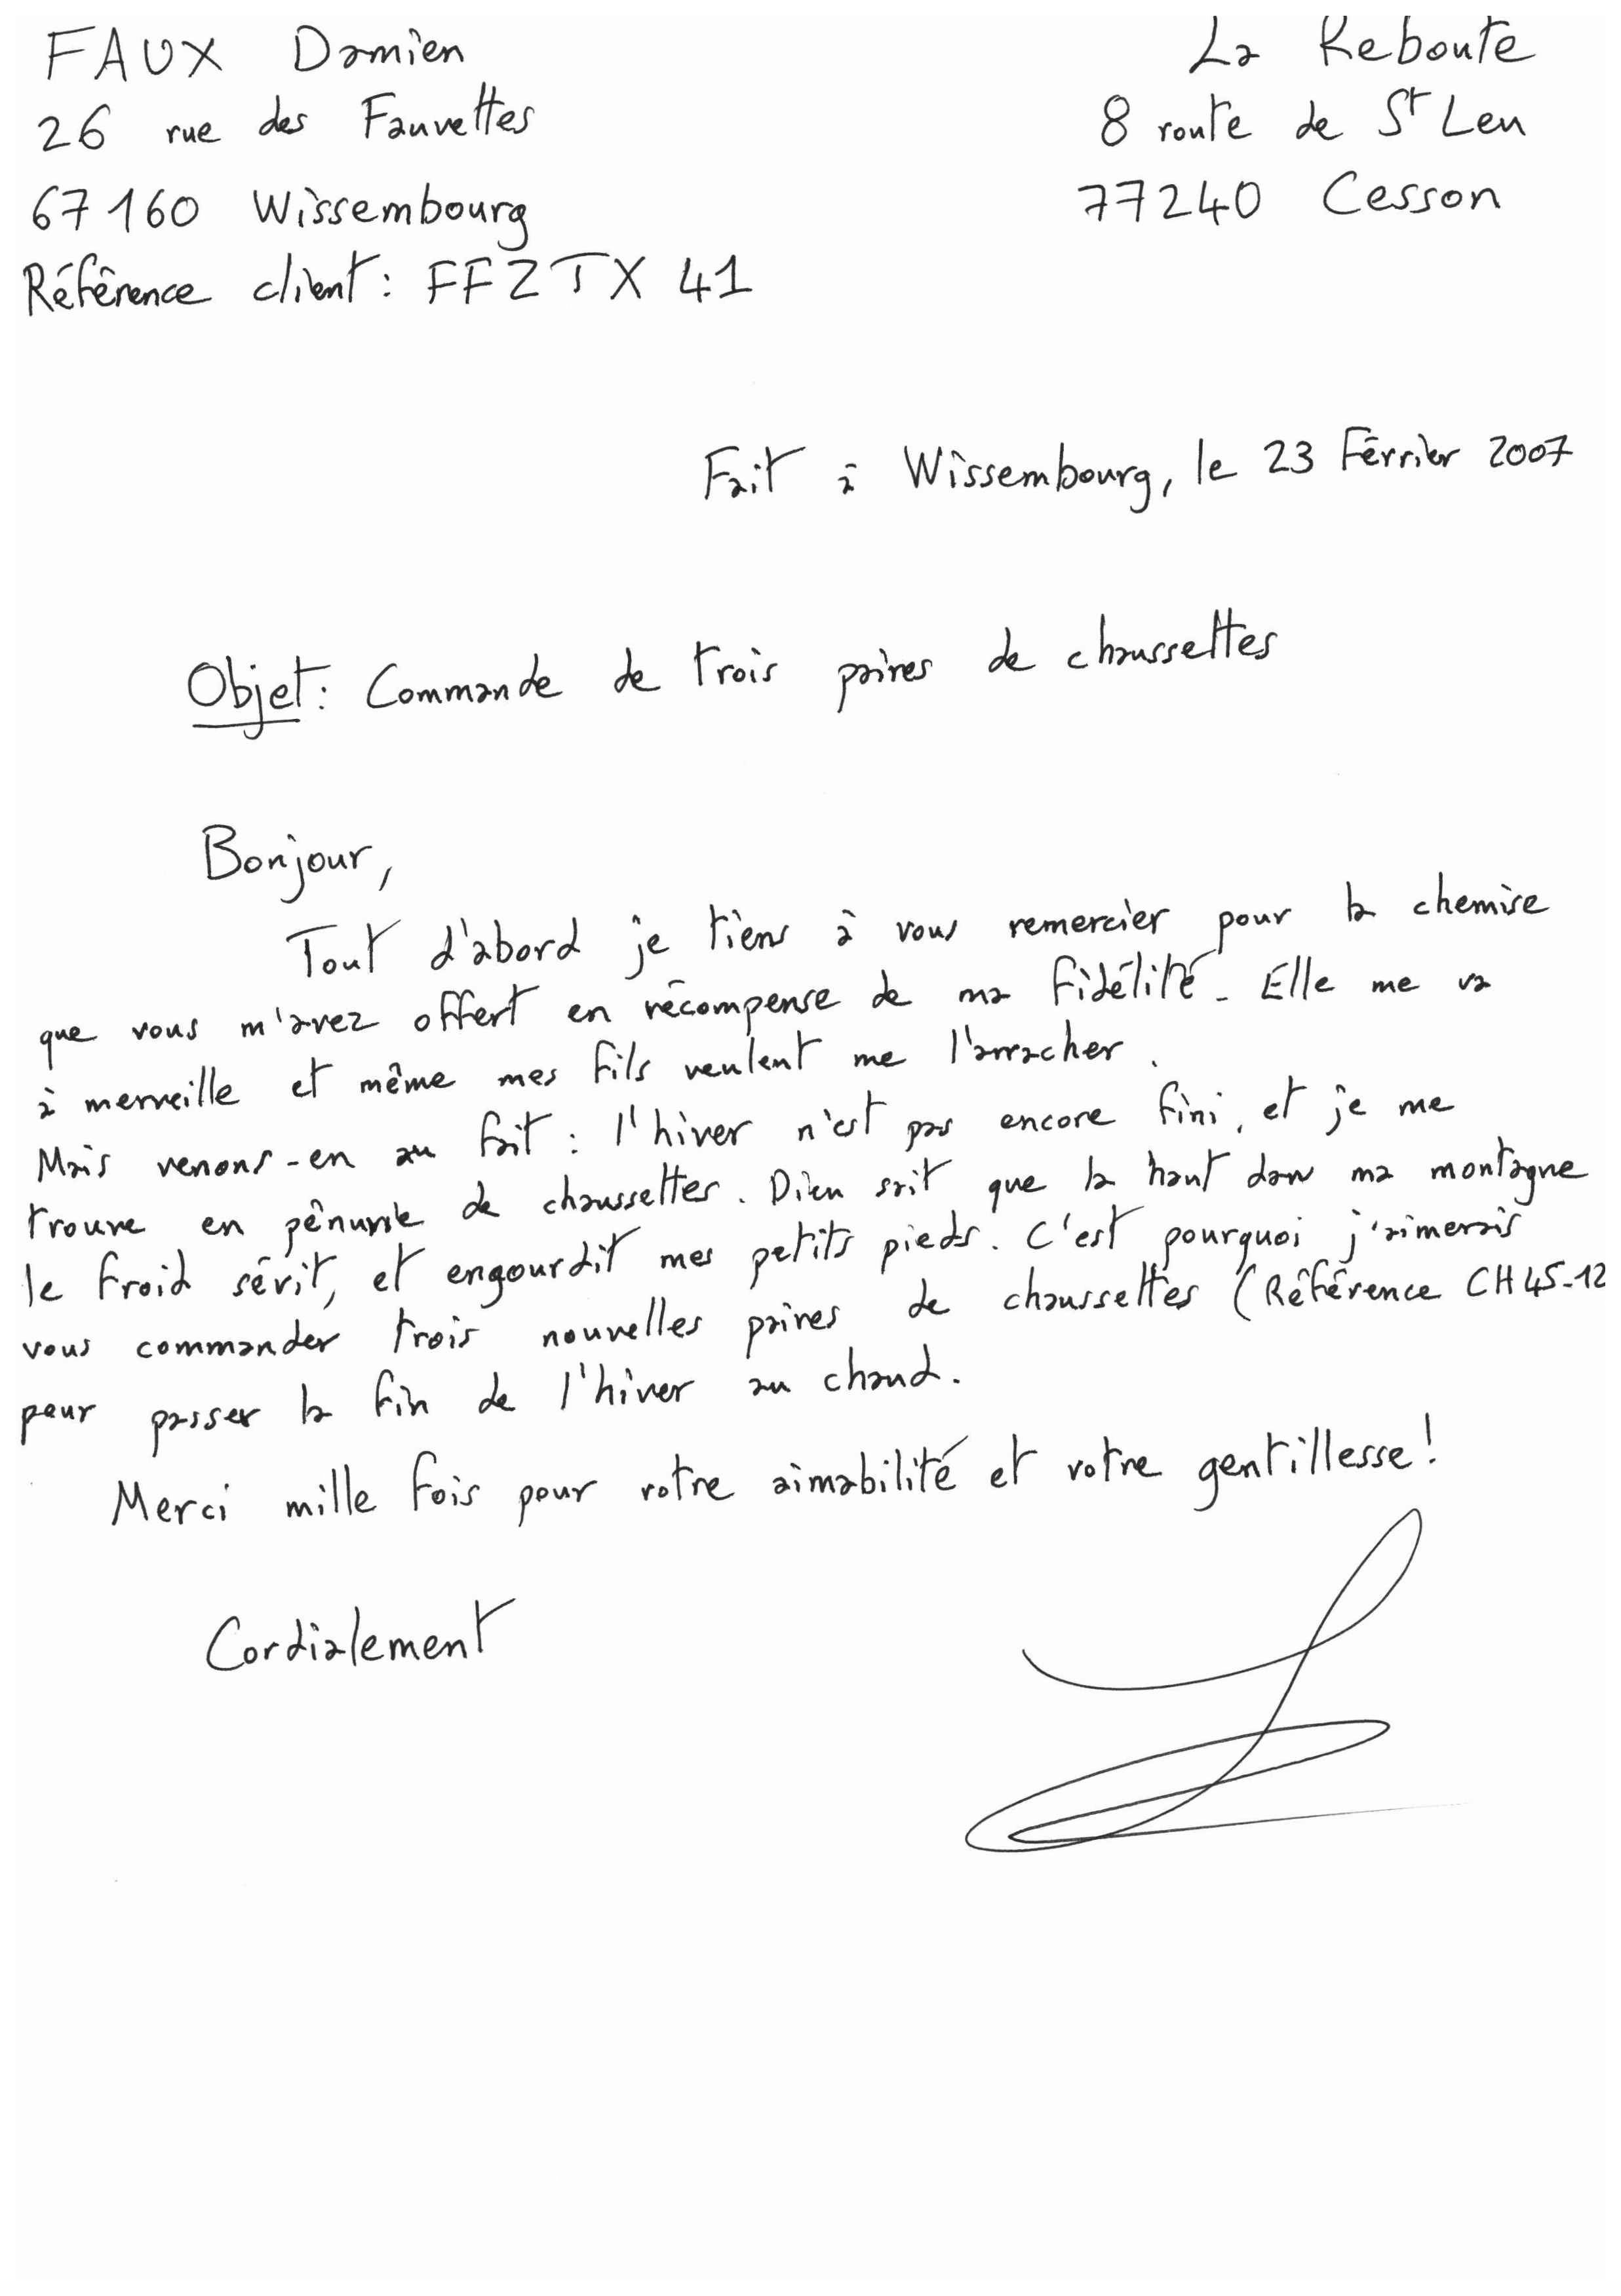 FAUX Damien
26 rue des Fauvettes
67160 Wissembourg
Référence client : FFZTX 41
La Reboute
8 route de St Leu
77240 Cesson
Fait à Wissembourg, le 23 Février 2007
Objet : Commande de trois paires de chaussettes
Bonjour,
Tout d'abord je tiens à vous remercier pour la chemise
que vous m'avez offert en récompense de ma fidélité. Elle me va
à merveille et même mes fils veulent me l'arracher.
Mais venons-en au fait : l'hiver n'est pas encore fini, et je me
trouve en pénurie de chaussettes. Dieu sait que la haut dans ma montagne
le froid sévit, et engourdit mes petits pieds. C'est pourquoi j'aimerais
vous commander trois nouvelles paires de chaussettes (Référence CH45-12
pour passer la fin de l'hiver au chaud.
Merci mille fois pour votre aimabilité et votre gentillesse !
Cordialement